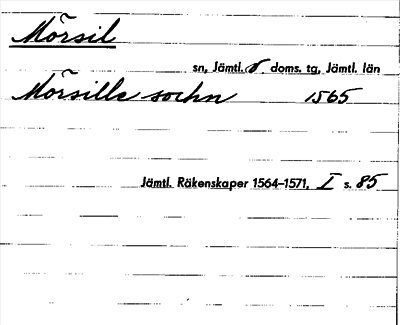 Mörsil
sn, Jämtl. v. doms. tg, Jämtl. län
Mörsills sochn 1565
Jämtl. Räkenskaper 1564–1571, I s. 85